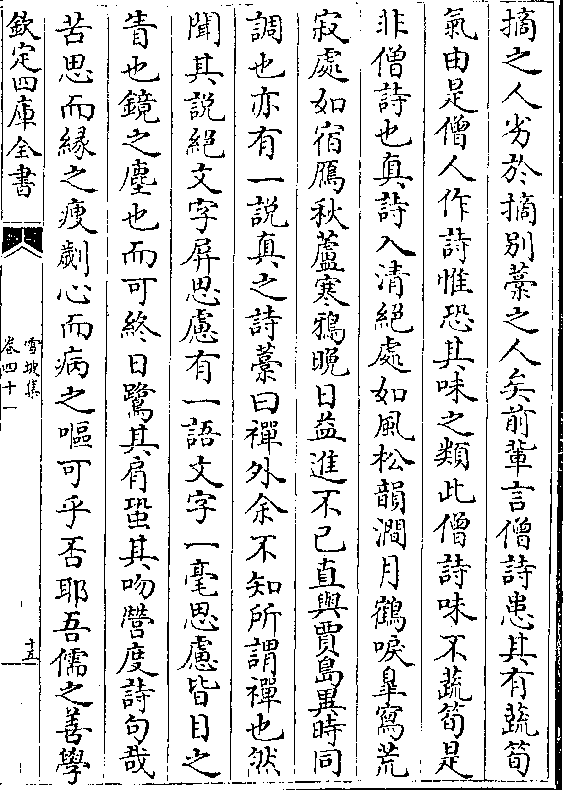 摘之人劣於摘別藁之人矣前輩言僧詩患其有蔬筍
氣由是僧人作詩惟恐其味之類此僧詩味不蔬筍是
非僧詩也真詩入清絕處如風松韻澗月鶴唳臯寫荒
寂處如宿鴈秋蘆寒鴉晚日益進不已直與賈島異時同
調也亦有一說真之詩藁曰禪外余不知所謂禪也然
聞其說絕文字屏思慮有一語文字一毫思慮皆目之
眚也鏡之塵也而可終日鷺其肩蛩其吻營度詩句哉
苦思而緣之瘦劌心而病之嘔可乎否耶吾儒之善學
欽定四庫全書
雪坡集
卷四十一
十五